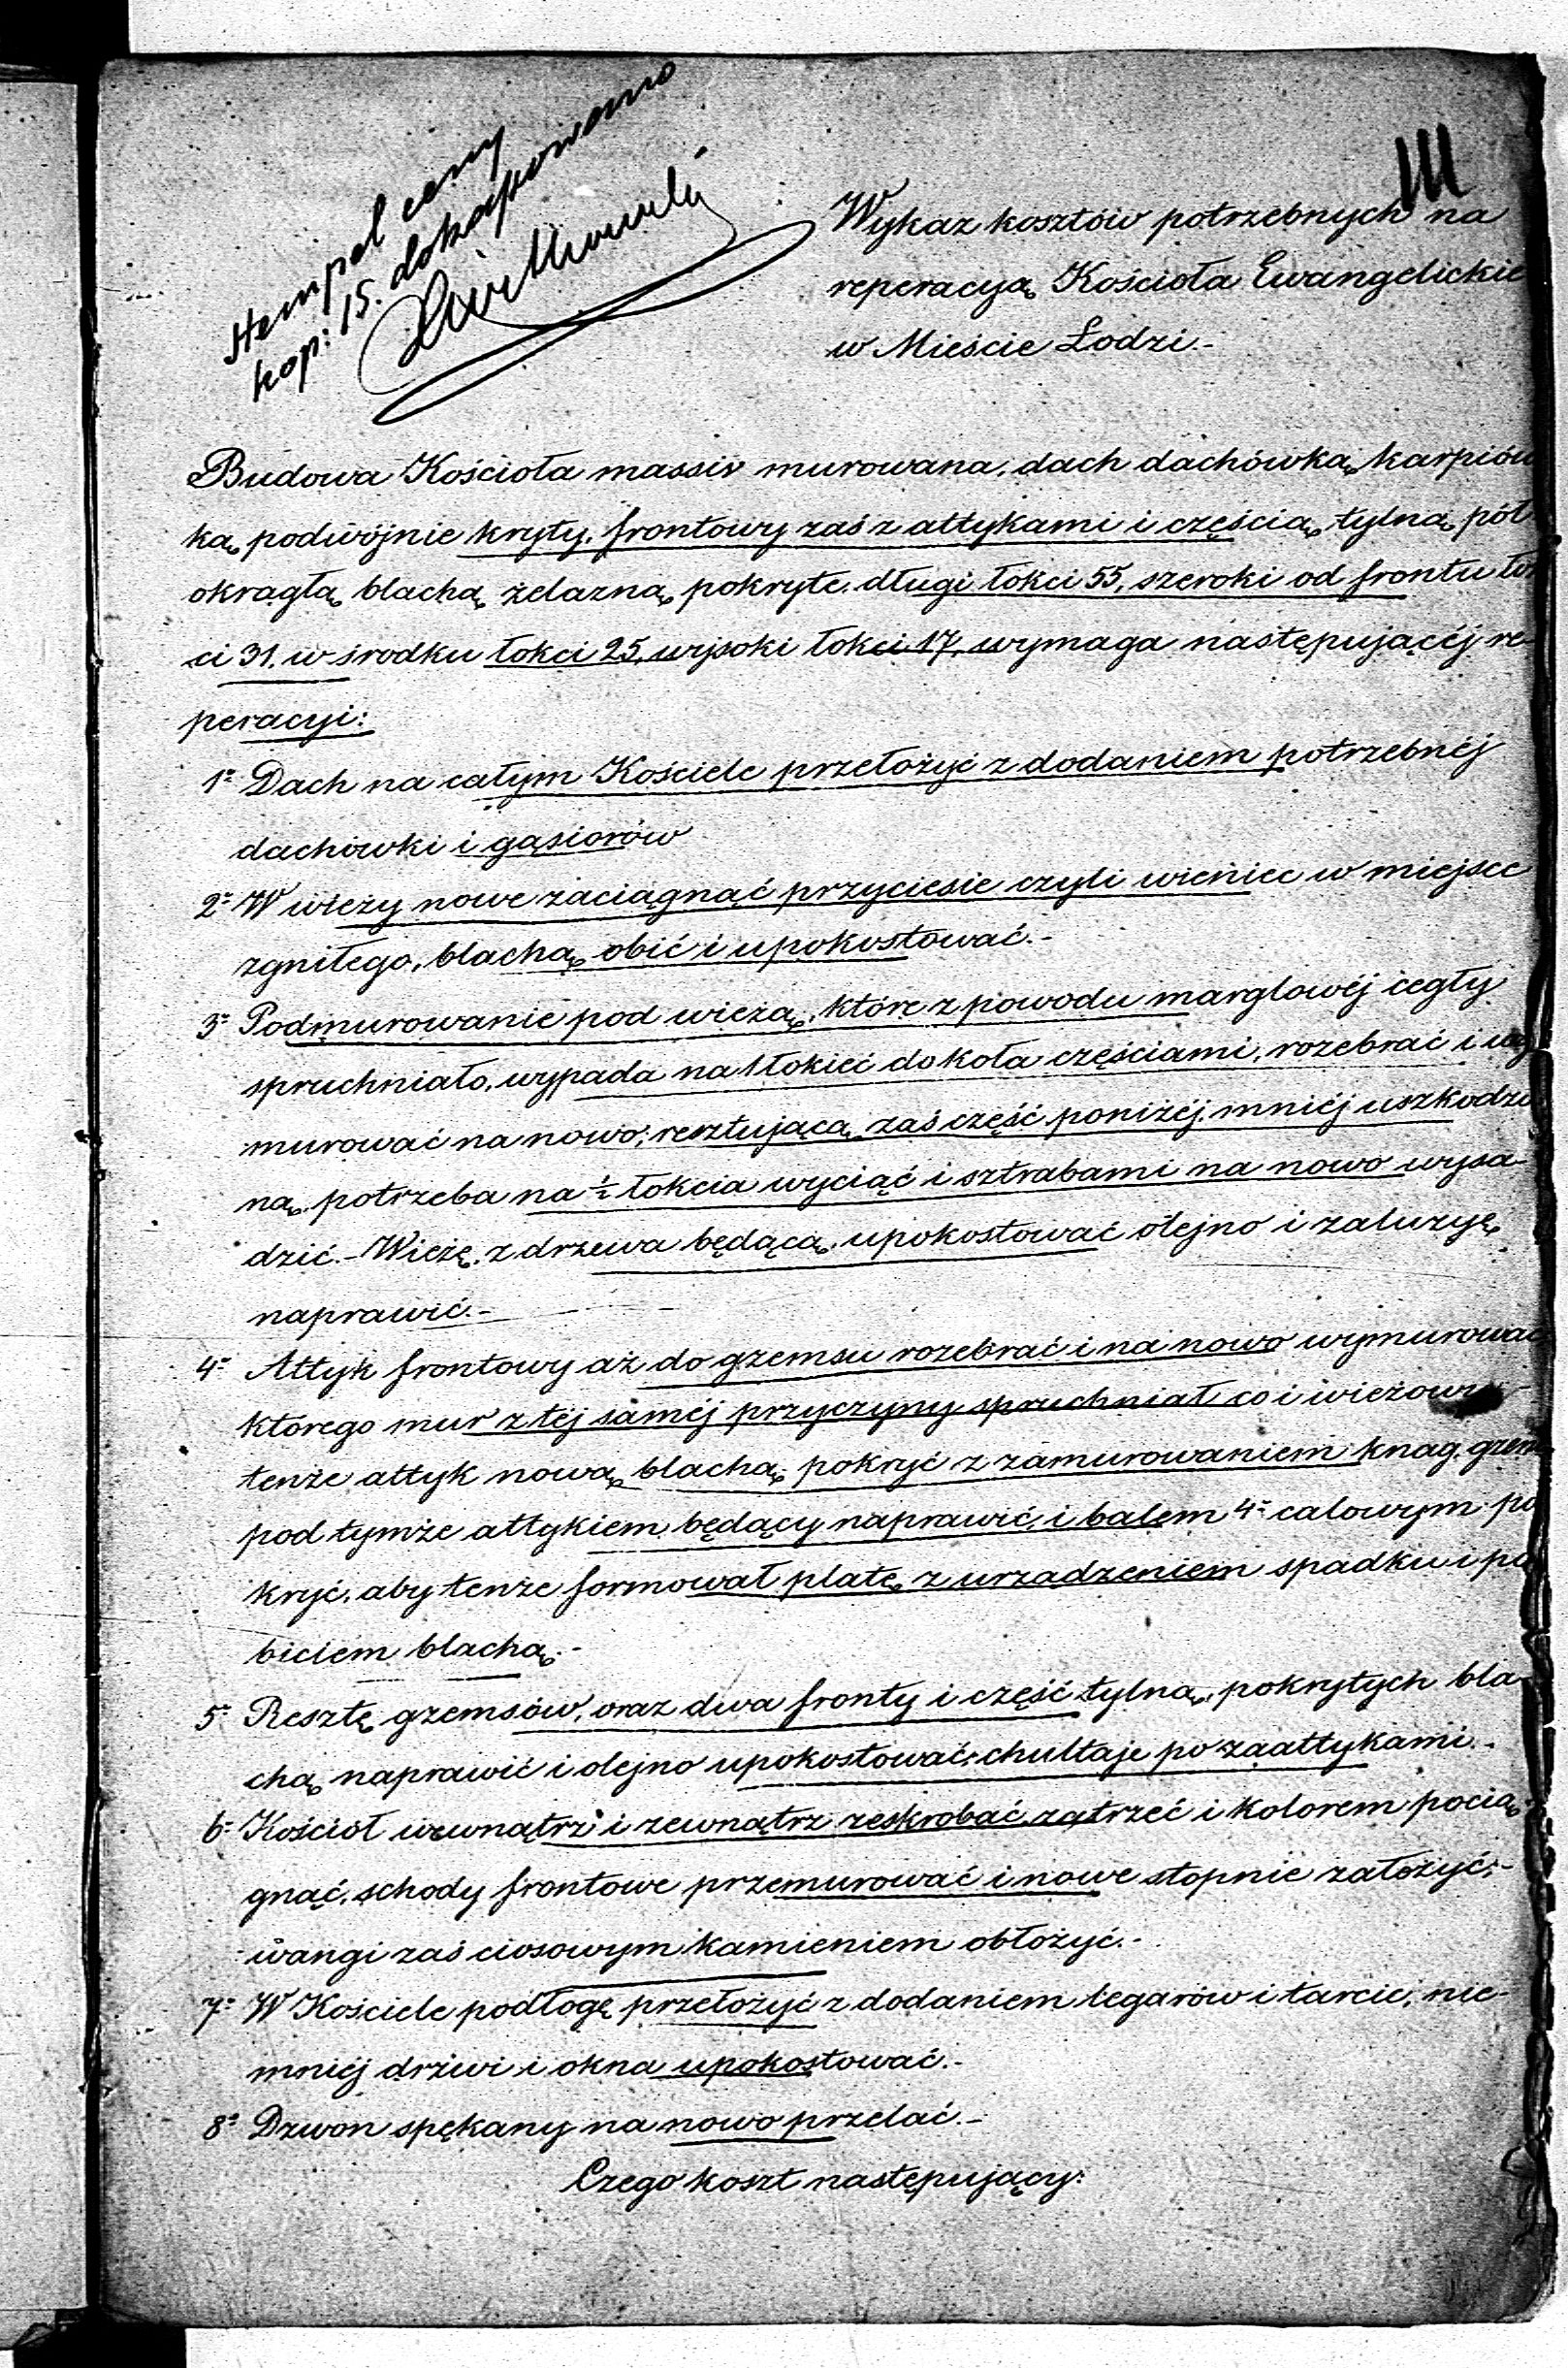 Stempel ceny
kop: 15. dokasowano
III
Wykaz kosztów potrzebnych na
reperacyą Kościoła Ewangelickie
w Mieście Łodzi.-
Budowa Kościoła massiv murowana, dach dachówką karpiów
ką podwójnie kryty, frontowy zaś z attykami i częścią tylną pół
okrągłą blachą żelazną pokryte. długi łokci 55, szeroki od frontu łok
ci 31. w środku łokci 25, wysoki łokci 17, wymaga następującéj re-
peracyi:
1º Dach na całym Kościele przełożyć z dodaniem potrzebnéj
dachówki i gąsiorów
2º W wieży nowe zaciągnąć przyciesie czyli wieniec w miejsce
zgniłego, blachą obić i upokostować.-
3º Podmurowanie pod wieżą, które z powodu marglowéj cegły
spruchniało, wypada na 1 łokieć dokoła częściami, rozebrać i wy
murować na nowo; resztującą zaś część poniżéj mniéj uszkodzo
ną, potrzeba na ½ łokcia wyciąć i sztrabami na nowo wysa-
dzić.- Wieżę, z drzewa będącą, upokostować olejno i żaluzyę
naprawić.-
4º Attyk frontowy aż do gzemsu rozebrać i na nowo wymurować
którego mur z téj saméj przyczyny spruchniał co i wieżowy-
tenże attyk nową blachą pokryć z zamurowaniem knag, gzems
pod tymże attykiem będący naprawić, i balem 4º calowym po
kryć, aby tenże formował platę z urządzeniem spadku i po
biciem blachą.-
5º Resztę gzemsów, oraz dwa fronty i część tylną, pokrytych bla-
chą naprawić i olejno upokostować, chultaje po zaattykami.-
6º Kościoł wewnątrz i zewnątrz zeskrobać, zatrzeć i kolorem pocią-
gnąć, schody frontowe przemurować i nowe stopnie założyć,-
wangi zaś ciosowym kamieniem obłożyć.-
7º W Kościele podłogę przełożyć z dodaniem legarów i tarcic, nie-
mniéj drzwi i okna upokostować.-
8º Dzwon spękany na nowo przelać.-
Czego koszt następujący: